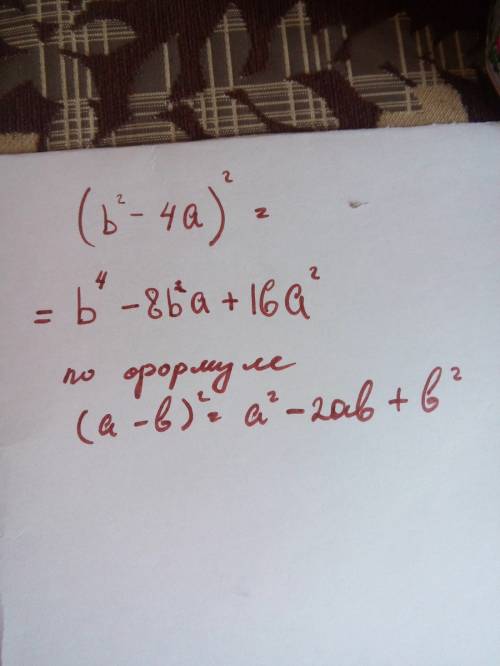 (b² - 4a)² =
= b⁴ - 8b²a + 16a²
по формуле
(a - b)² = a² - 2ab + b²